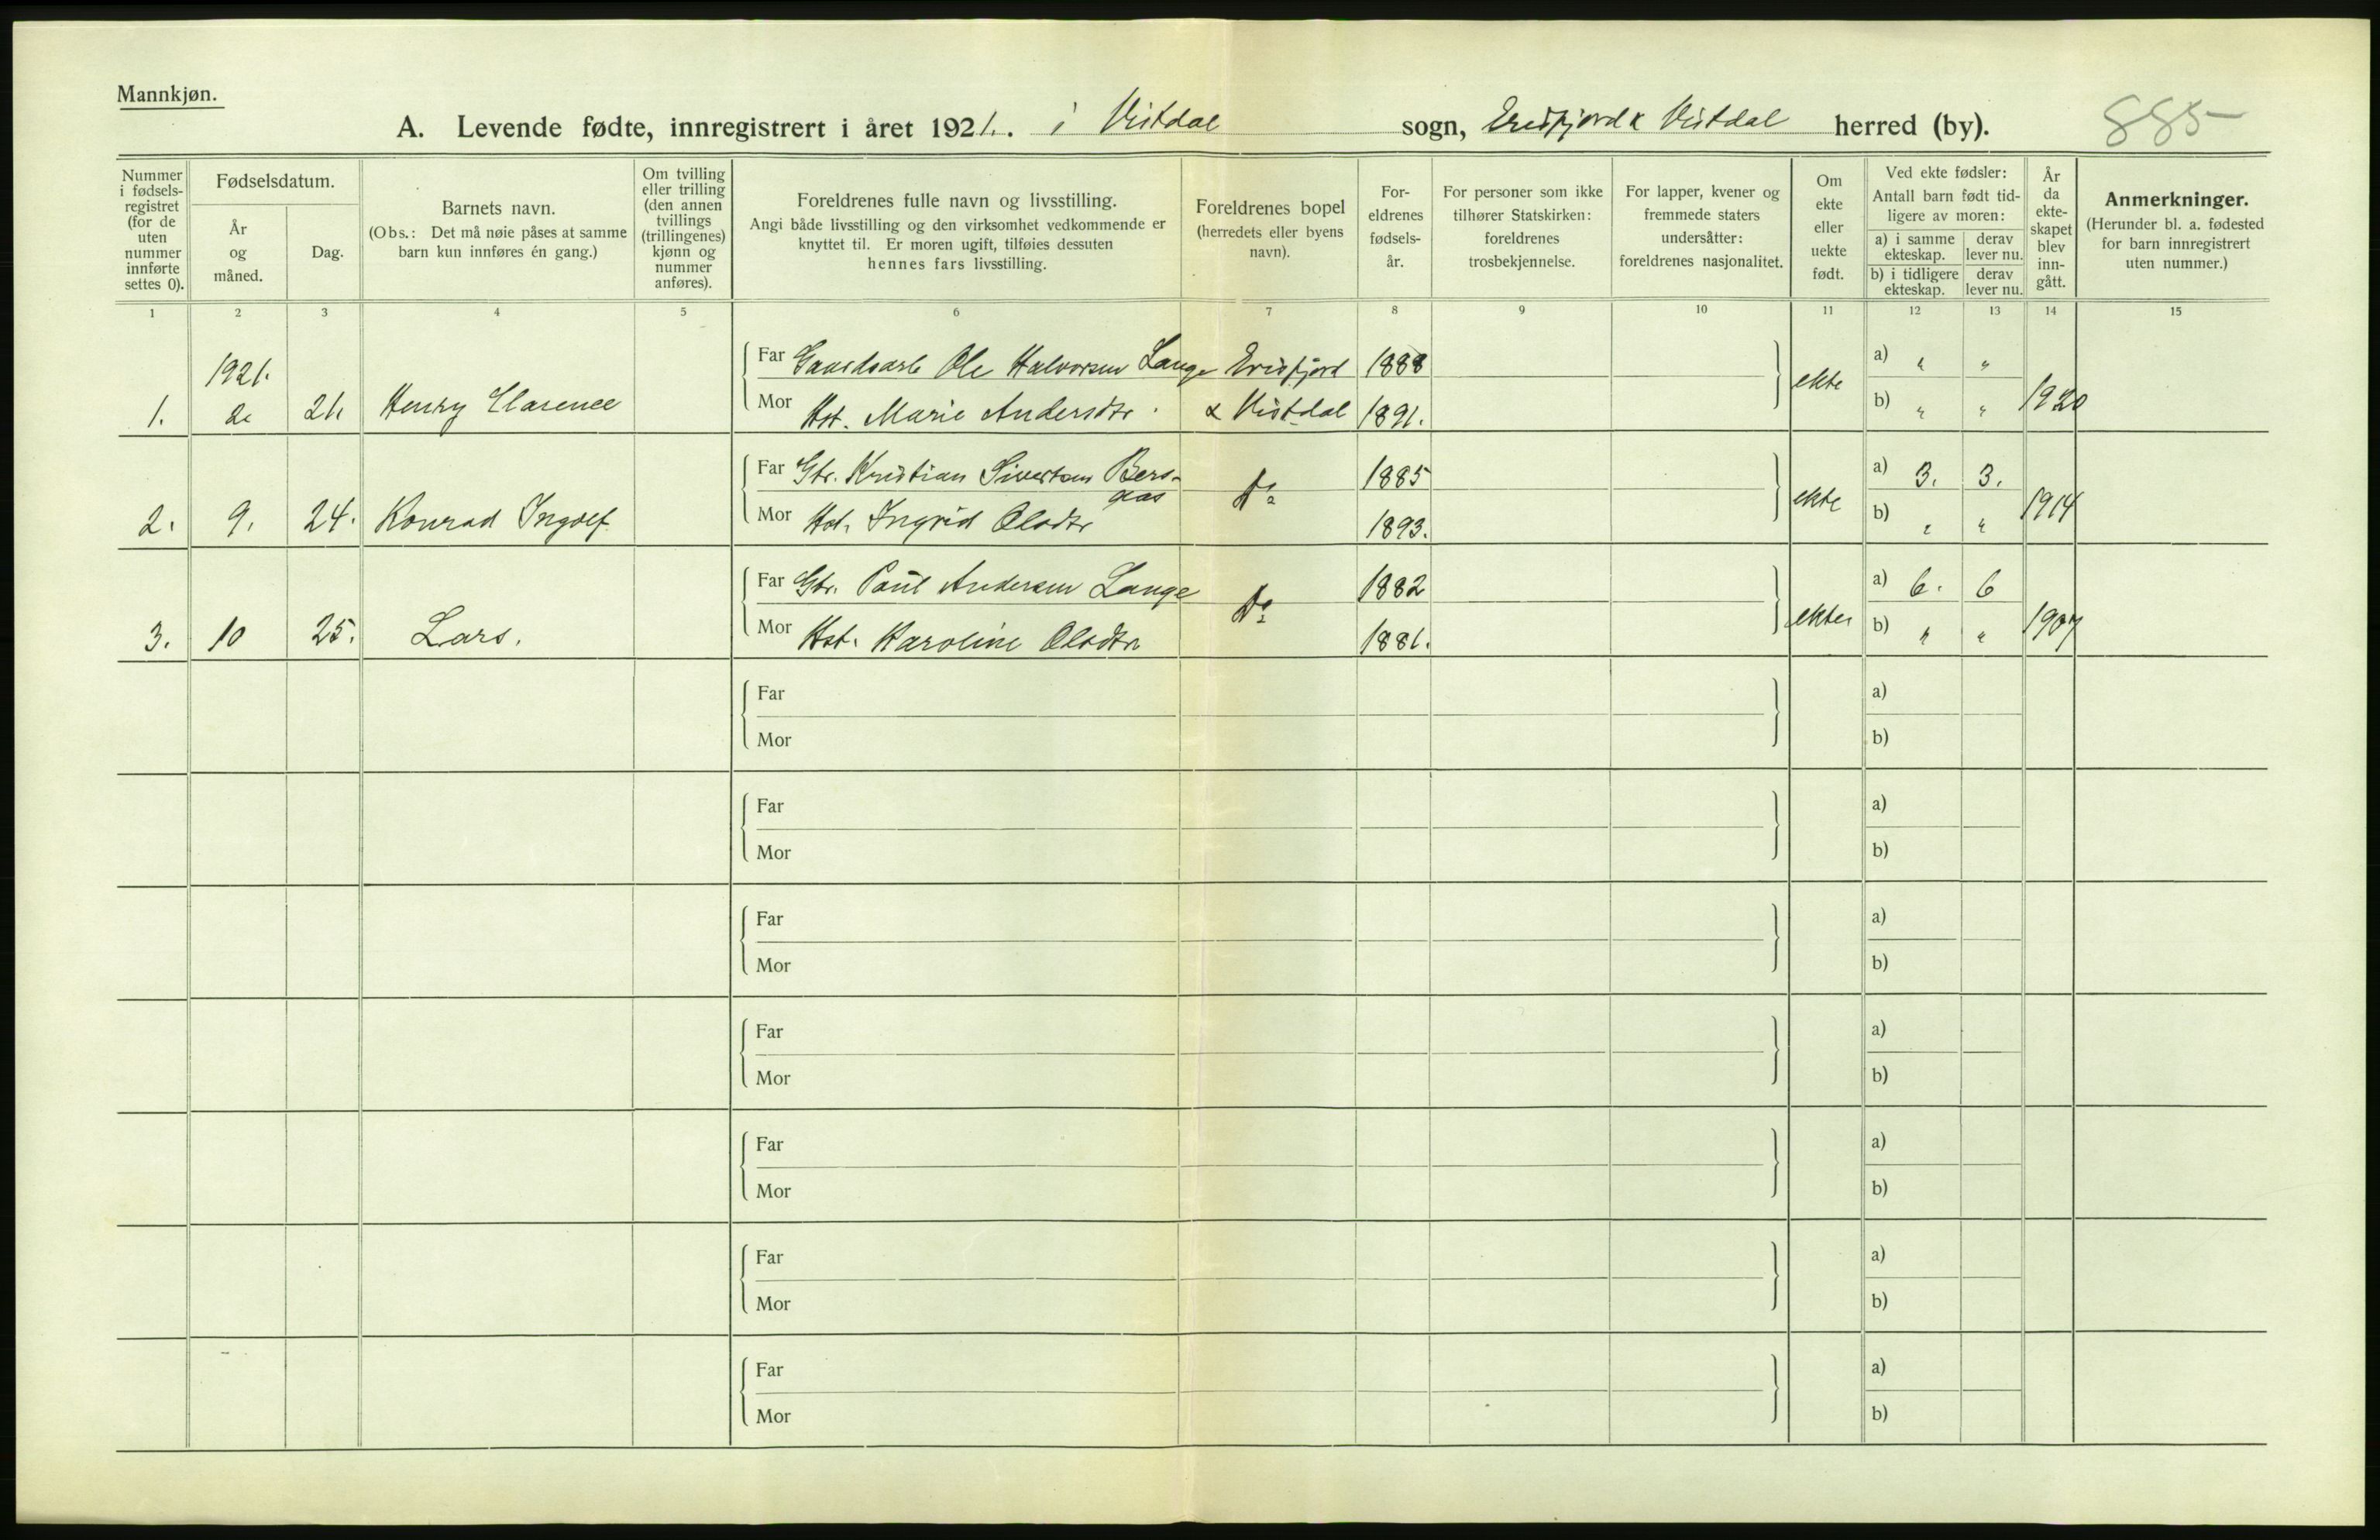 Mannkjøn.
A. Levende fødte, innregistrert i året 1921. i Vistdal sogn, Eresfjord & Vistdal herred (by). 885
Nummer i fødsels-registret (for de uten nummer innførte settes 0).
Fødselsdatum.
År og måned.
Dag.
Barnets navn.
(Obs.: Det må nøie påses at samme barn kun innføres én gang.)
Om tvilling eller trilling (den annen tvillings (trillingenes) kjønn og nummer anføres).
Foreldrenes fulle navn og livsstilling.
Angi både livsstilling og den virksomhet vedkommende er knyttet til. Er moren ugift, tilføies dessuten hennes fars livsstilling.
Foreldrenes bopel (herredets eller byens navn).
For-eldrenes fødsels-år.
For personer som ikke tilhører Statskirken: foreldrenes trosbekjennelse.
For lapper, kvener og fremmede staters undersåtter: foreldrenes nasjonalitet.
Om ekte eller uekte født.
Ved ekte fødsler:
Antall barn født tid-ligere av moren:
a) i samme ekteskap. derav lever nu.
b) i tidligere ekteskap. derav lever nu.
År da ekte-skapet blev inn-gått.
Anmerkninger.
(Herunder bl. a. fødested for barn innregistrert uten nummer.)
1 2 3 4 5 6 7 8 9 10 11 12 13 14 15
1921.
Far Gaardsarb Ole Halvorsen Lange Eresfjord 1888 a) " "
1. 2. 21. Henry Clarence Mor Hst. Marie Andersdtr. & Vistdal 1891. ekte b) " " 1920
Far Gbr. Kristian Sivertsen Bers- 1885 a) 3. 3.
aas
2. 9. 24. Konrad Ingolf Mor Hst. Ingrid Olsdtr Do 1893. ekte b) " " 1914
Far Gbr. Paul Andersen Lange 1882 a) 6. 6
3. 10 25. Lars. Mor Hst. Karoline Olsdtr Do 1881. ekte b) " " 1907
Far a)
Mor b)
Far a)
Mor b)
Far a)
Mor b)
Far a)
Mor b)
Far a)
Mor b)
Far a)
Mor b)
Far a)
Mor b)